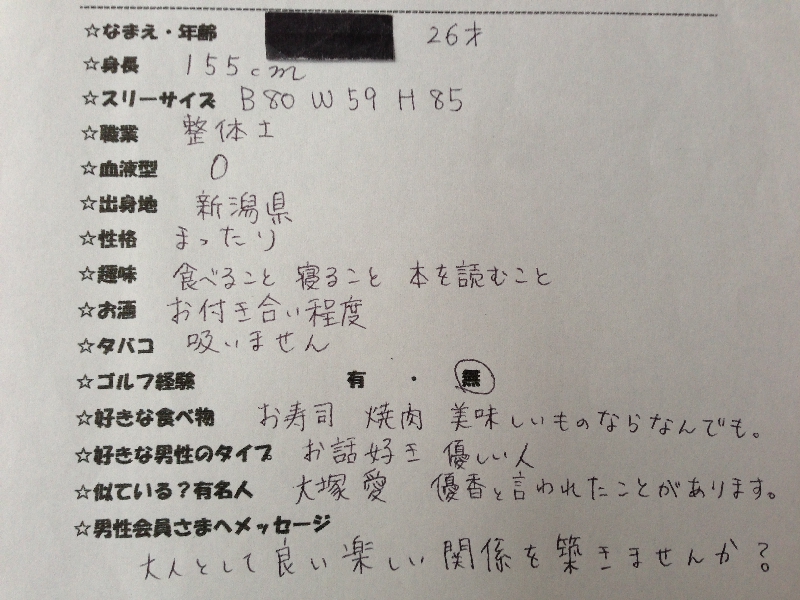 ☆なまえ・年齢 26才
☆身長 155cm
☆スリーサイズ B80 W59 H85
☆職業 整体士
☆血液型 O
☆出身地 新潟県
☆性格 まったり
☆趣味 食べること 寝ること 本を読むこと
☆お酒 お付き合い程度
☆タバコ 吸いません
☆ゴルフ経験 有 ・ 無
☆好きな食べ物 お寿司 焼肉 美味しいものならなんでも。
☆好きな男性のタイプ お話好き 優しい人
☆似ている？有名人 大塚愛 優香と言われたことがあります。
☆男性会員さまへメッセージ
大人として良い楽しい関係を築きませんか？